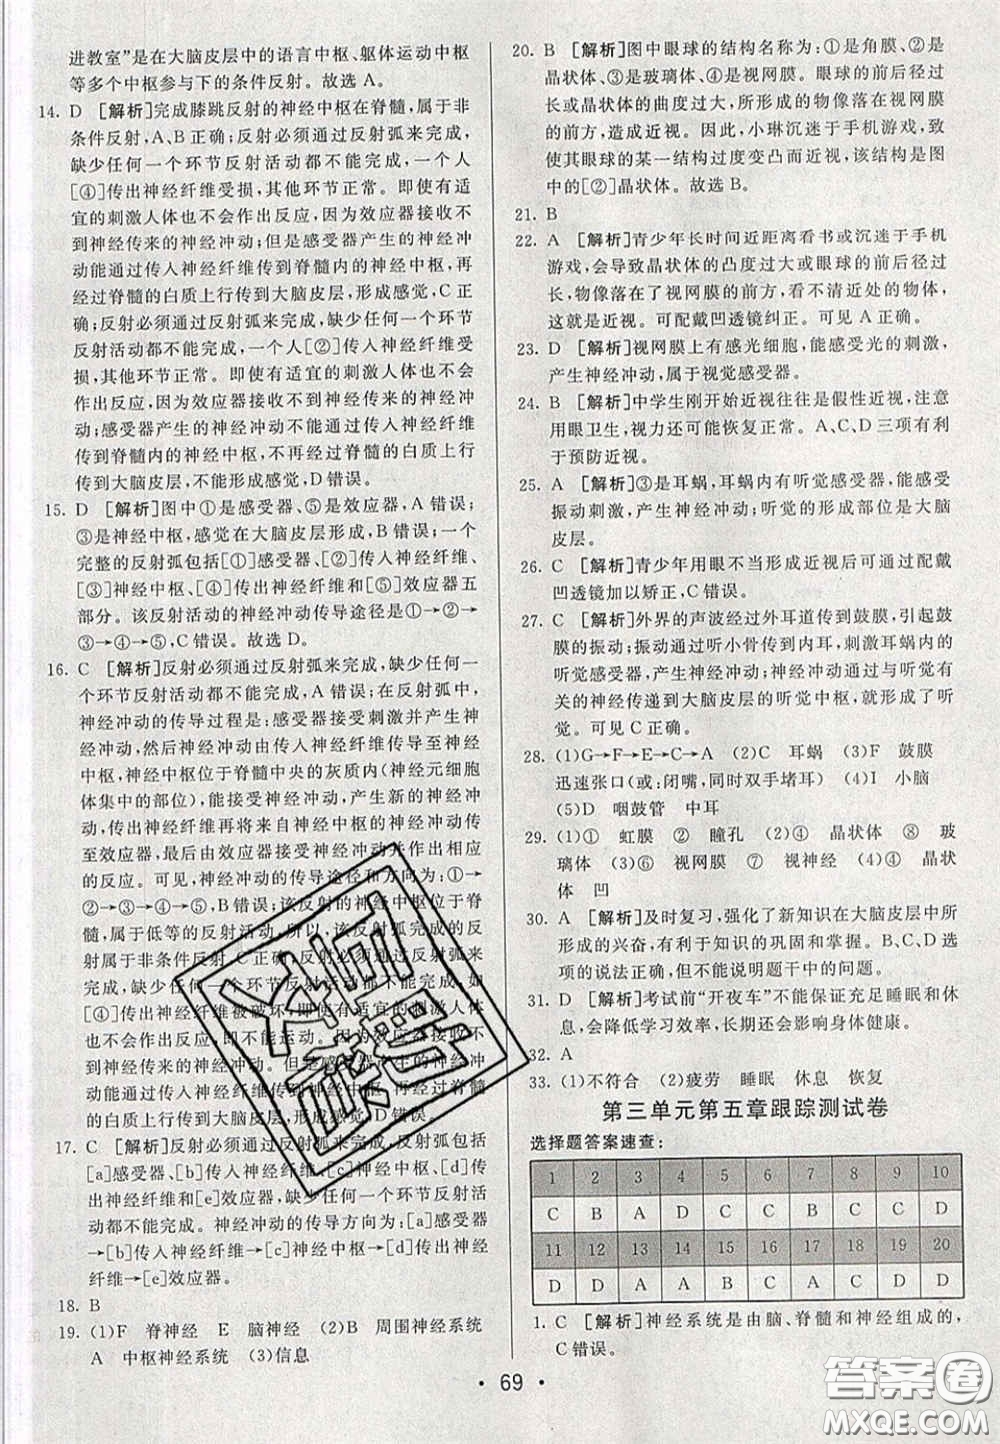 进教室”是在大脑皮层中的语言中枢、躯体运动中枢
等多个中枢参与下的条件反射。故选 A。
14. D [解析]完成膝跳反射的神经中枢在脊髓,属于非
条件反射,A、B 正确;反射必须通过反射弧来完成,
缺少任何一个环节反射活动都不能完成,一个人
[④]传出神经纤维受损,其他环节正常。即使有适
宜的刺激人体也不会作出反应,因为效应器接收不
到神经传来的神经冲动;但是感受器产生的神经冲
动能通过传入神经纤维传到脊髓内的神经中枢,再
经过脊髓的白质上行传到大脑皮层,形成感觉,C 正
确;反射必须通过反射弧来完成,缺少任何一个环节
反射活动都不能完成,一个人[②]传入神经纤维受损,
其他环节正常。即使有适宜的刺激人体也不会作
出反应,因为效应器接收不到神经传来的神经冲动,
感受器产生的神经冲动不能通过传入神经纤维传
到脊髓内的神经中枢,不能经过脊髓的白质上行传
到大脑皮层,不能形成感觉。故选 D 错误。
15. D [解析]图中①是感受器、⑤是效应器,A 错误;
③是神经中枢,感觉在大脑皮层形成,B 错误;一个
完整的反射弧包括[①]感受器、[②]传入神经纤维、
[③]神经中枢、[④]传出神经纤维和[⑤]效应器五
部分。该反射活动的神经冲动传导途径是①→②→
③→④→⑤,C 错误。故选 D。
16. C [解析]反射必须通过反射弧来完成,缺少任何一
个环节反射活动都不能完成,A 错误;在反射弧中,
神经冲动的传导过程是:感受器接受刺激并产生神
经冲动,然后神经冲动由传入神经纤维传导至神经
中枢,神经中枢位于脊髓中央的灰质内(神经元细胞
体集中的部位),能接受神经冲动,产生新的神经冲
动,传出神经纤维再将来自神经中枢的神经冲动传
至效应器,最后由效应器接受神经冲动并作出相应
的反应。可见,神经冲动的传导途径和方向为:①→
②→③→④→⑤,B 错误;该反射的神经中枢在脊
髓,属于低等的反射活动。所以,该反射弧完成的反
射属于非条件反射,C 正确;
人体也不会作出反应,因为效应器接收不
到神经传来的神经冲动,但是感受器产生的神经冲
动能通过传入神经纤维传到脊髓内的神经中枢,再
经过脊髓的白质上行传到大脑皮层,形成感觉,D
错误。
17. C [解析]反射必须通过反射弧来完成,反射弧包括
[a]感受器、[b]传入神经纤维、[c]神经中枢、[d]传
出神经纤维和[e]效应器,缺少任何一个环节反射活
动都不能完成。神经冲动的传导方向为:[a]感受器
→[b]传入神经纤维→[c]神经中枢→[d]传出神经
纤维→[e]效应器。
18. B
19. (1)F 脊神经 E 脑神经 (2)B 周围神经系统
A 中枢神经系统 (3)信息
20. B [解析]图中眼球的结构名称为:①是角膜、②是
晶状体、③是玻璃体、④是视网膜。眼球的前后径过
长或晶状体的曲度过大,所形成的物像落在视网膜
的前方,造成近视。因此,小琳沉迷于手机游戏,致
使其眼球的某一结构过度变凸而近视,该结构是图
中的[②]晶状体。故选 B。
21. B
22. A [解析]青少年长时间近距离看书或沉迷于手机
游戏,会导致晶状体的凸度过大或眼球的前后径过
长,物像落在了视网膜的前方,看不清远处的物体,
这就是近视。可配戴凹透镜纠正。可见 A 正确。
23. D [解析]视网膜上有感光细胞,能感受光的刺激,
产生神经冲动,属于视觉感受器。
24. B [解析]中学生刚开始近视往往是假性近视,注意
用眼卫生,视力还可能恢复正常。A、C、D 三项有利
于预防近视。
25. A [解析]③是耳蜗,耳蜗内有听觉感受器,能感受
振动刺激,产生神经冲动;听觉的形成部位是大脑
皮层。
26. C [解析]青少年用眼不当形成近视后可通过配戴
凹透镜加以矫正,C 错误。
27. C [解析]外界的声波经过外耳道传到鼓膜,引起鼓
膜的振动;振动通过听小骨传到内耳,刺激耳蜗内的
听觉感受器,产生神经冲动;神经冲动通过与听觉有
关的神经传递到大脑皮层的听觉中枢,就形成了听
觉。可见 C 正确。
28. (1)G→F→E→C→A (2)C 耳蜗 (3)F 鼓膜
迅速张口(或:闭嘴,同时双手堵耳) (4)I 小脑
(5)D 咽鼓管 中耳
29. (1)① 虹膜 ② 瞳孔 (2)④ 晶状体 ⑧ 玻
璃体 (3)⑥ 视网膜 ⑦ 视神经 (4)④ 晶状
体 凹
30. A [解析]及时复习,强化了新知识在大脑皮层中所
形成的兴奋,有利于知识的巩固和掌握。B、C、D 选
项的说法正确,但不能说明题干中的问题。
31. D [解析]考试前“开夜车”不能保证充足睡眠和休
息,会降低学习效率,长期还会影响身体健康。
32. A
33. (1)不符合 (2)疲劳 睡眠 休息 恢复
第三单元第五章跟踪测试卷
选择题答案速查:
1 2 3 4 5 6 7 8 9 10
C B A D C C C C C D
11 12 13 14 15 16 17 18 19 20
D D A A D A D C D D
1. C [解析]神经系统是由脑、脊髓和神经组成的,
C 错误。
· 69 ·
答案圈
MXQE.COM